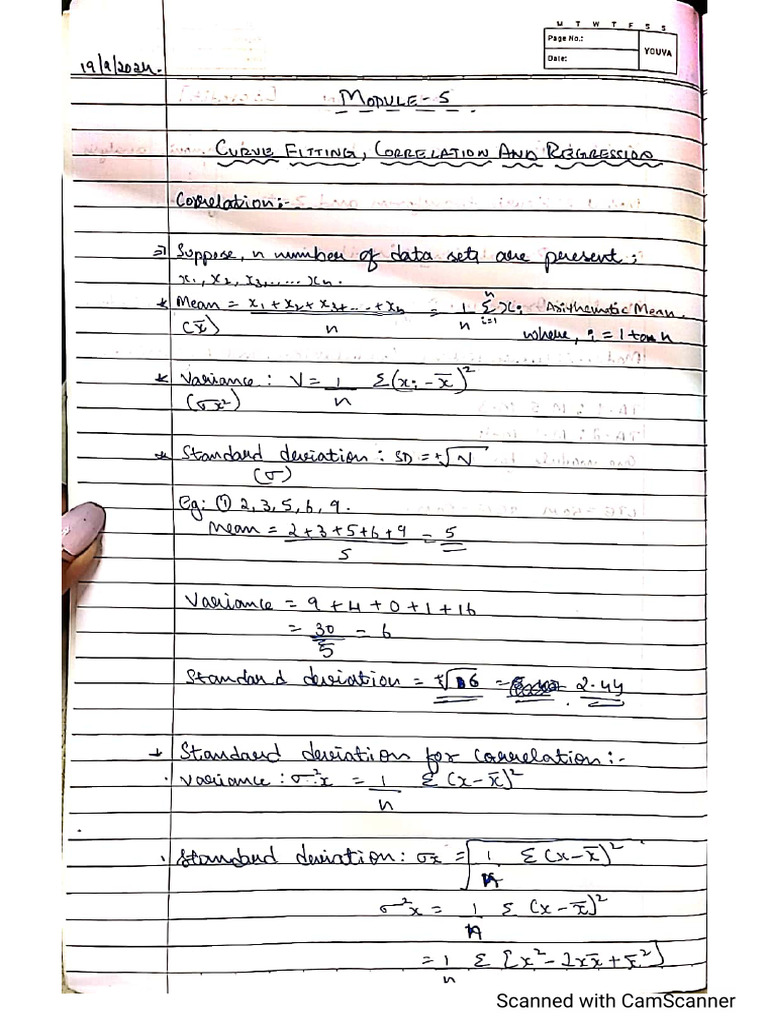 M T W T F S S
Page No.:
Date:
YOUVA
19/9/2024.
MODULE-5
CURVE FITTING, CORRELATION AND REGRESSION
Correlation:-
⇒ Suppose, n number of data sets are present;
x₁, x₂, x₃, .... xₙ.
* Mean = x₁+x₂+x₃+...+xₙ / n = 1/n Σ_{i=1}^{n} xᵢ Arithematic Mean.
(x̄) where, i = 1 to n
* Variance: V = 1/n Σ(xᵢ - x̄)²
(σx²)
* Standard deviation: SD = +√V
(σ)
Eg: ① 2, 3, 5, 6, 9.
Mean = 2+3+5+6+9 / 5 = 5
Variance = 9+4+0+1+16
= 30/5 = 6
Standard deviation = +√6 = 2.44
* Standard deviation for correlation:-
. variance: σ²x = 1/n Σ(x-x̄)²
. Standard deviation: σx = √(1/n Σ(x-x̄)²)
σ²x = 1/n Σ(x-x̄)²
= 1/n Σ[x² - 2xx̄ + x̄²]
Scanned with CamScanner